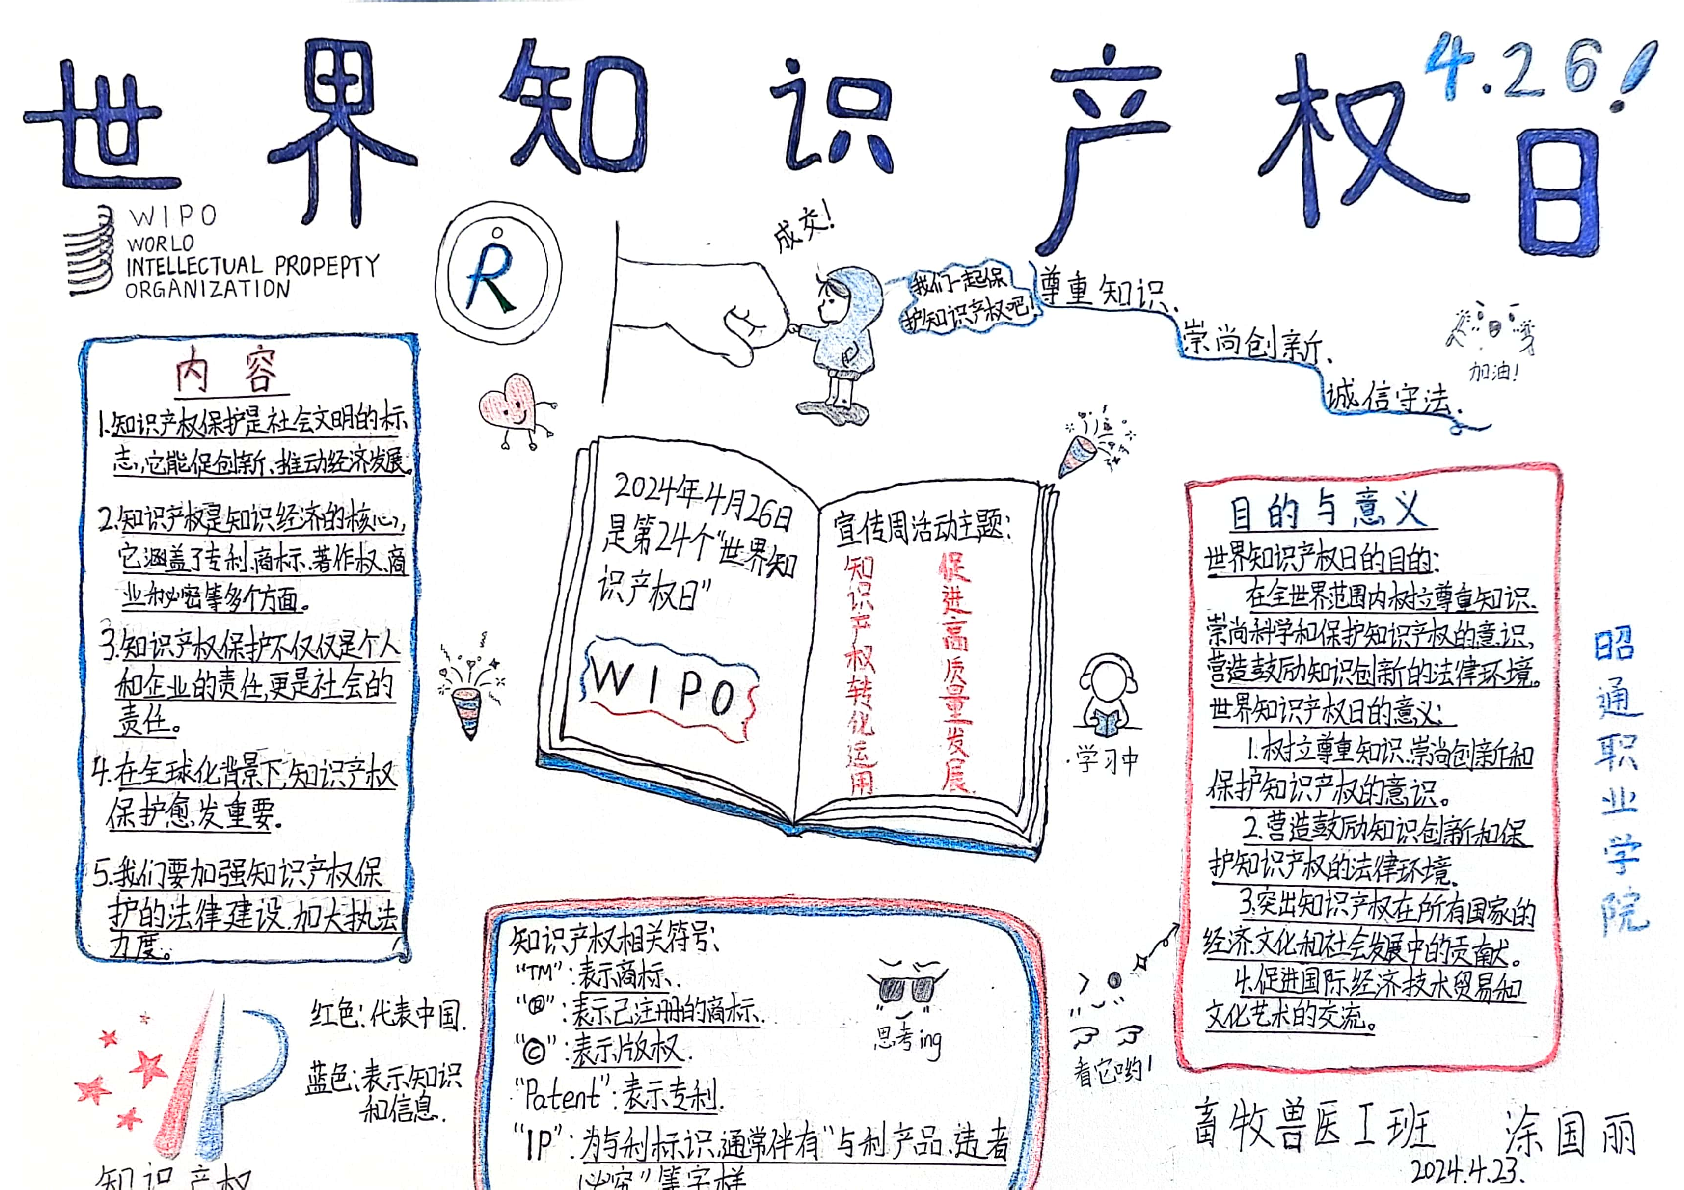 世界知识产权日
4.26!
WIPO
WORLD
INTELLECTUAL PROPEPTY
ORGANIZATION
R
成交!
我们一起保
护知识产权吧!
尊重知识、
崇尚创新、
诚信守法.
加油!
内容
1.知识产权保护是社会文明的标
志,它能促创新、推动经济发展。
2.知识产权是知识经济的核心,
它涵盖了专利、商标、著作权、商
业秘密等多个方面。
3.知识产权保护不仅仅是个人
和企业的责任,更是社会的
责任。
4.在全球化背景下,知识产权
保护愈发重要。
5.我们要加强知识产权保
护的法律建设,加大执法
力度。
2024年4月26日
是第24个“世界知
识产权日”
WIPO
宣传周活动主题:
知识产权转化运用
促进高质量发展
学习中
目的与意义
世界知识产权日的目的:
在全世界范围内树立尊重知识、
崇尚科学和保护知识产权的意识,
营造鼓励知识创新的法律环境。
世界知识产权日的意义:
1.树立尊重知识、崇尚创新和
保护知识产权的意识。
2.营造鼓励知识创新和保
护知识产权的法律环境。
3.突出知识产权在所有国家的
经济、文化和社会发展中的贡献。
4.促进国际经济、技术贸易和
文化艺术的交流。
昭通职业学院
红色:代表中国.
蓝色:表示知识
和信息.
IP
知识产权
知识产权相关符号:
“TM”:表示商标.
“®”:表示已注册的商标.
“©”:表示版权.
“Patent”:表示专利.
“IP”:为与利标识,通常伴有“与利产品、违者
必究”等字样
思考ing
看它哟!
畜牧兽医I班 涂国丽
2024.4.23.